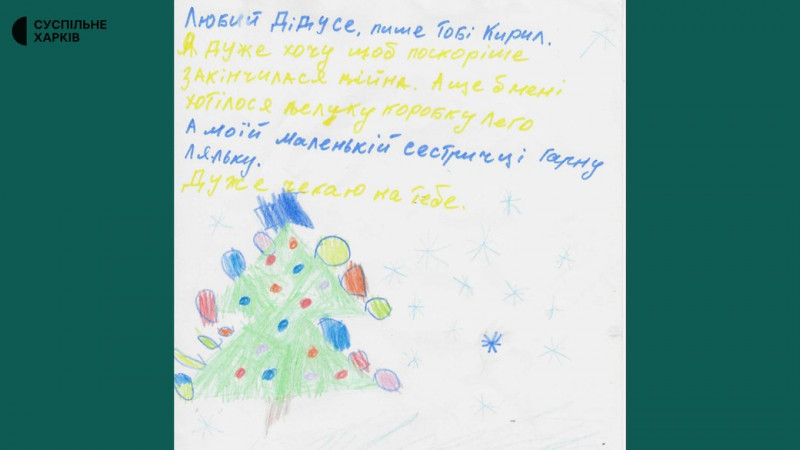 СУСПІЛЬНЕ
ХАРКІВ
Любий Дідусе, пише тобі Кирил.
Я дуже хочу щоб поскоріше
закінчилася війна. А ще б мені
хотілося велуку коробку лего
А моїй маленькій сестричці гарну
ляльку.
Дуже чекаю на тебе.